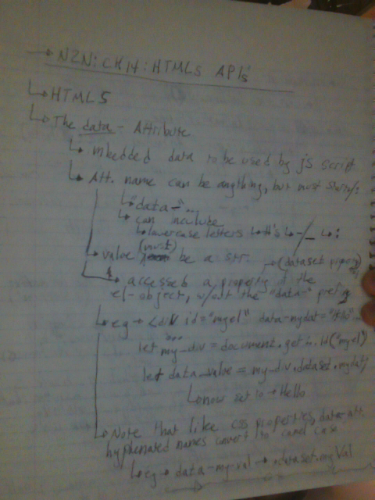 → N2N: CH14: HTML5 API's
↳ HTML5
↳ The data - Attribute
↳ imbedded data to be used by js script
↳ Att. name can be anything, but must start w/
↳ "data-"...
↳ can include
↳ lowercase letters ↳ #'s ↳ -/_ ↳ :
↳ value (must) be a str. → (dataset property)
↳ accessed a property of the
el-object, w/out the "data-" prefix
↳ eg → <div id="myel" data-mydat=
...
let my_div = document.get ("myel")
let data_value = my_div.dataset.mydat;
↳ now set to → Hello
↳ Note that like css properties, data-att
hyphenated names convert to camel case
↳ eg → data-my-val → dataset.myVal